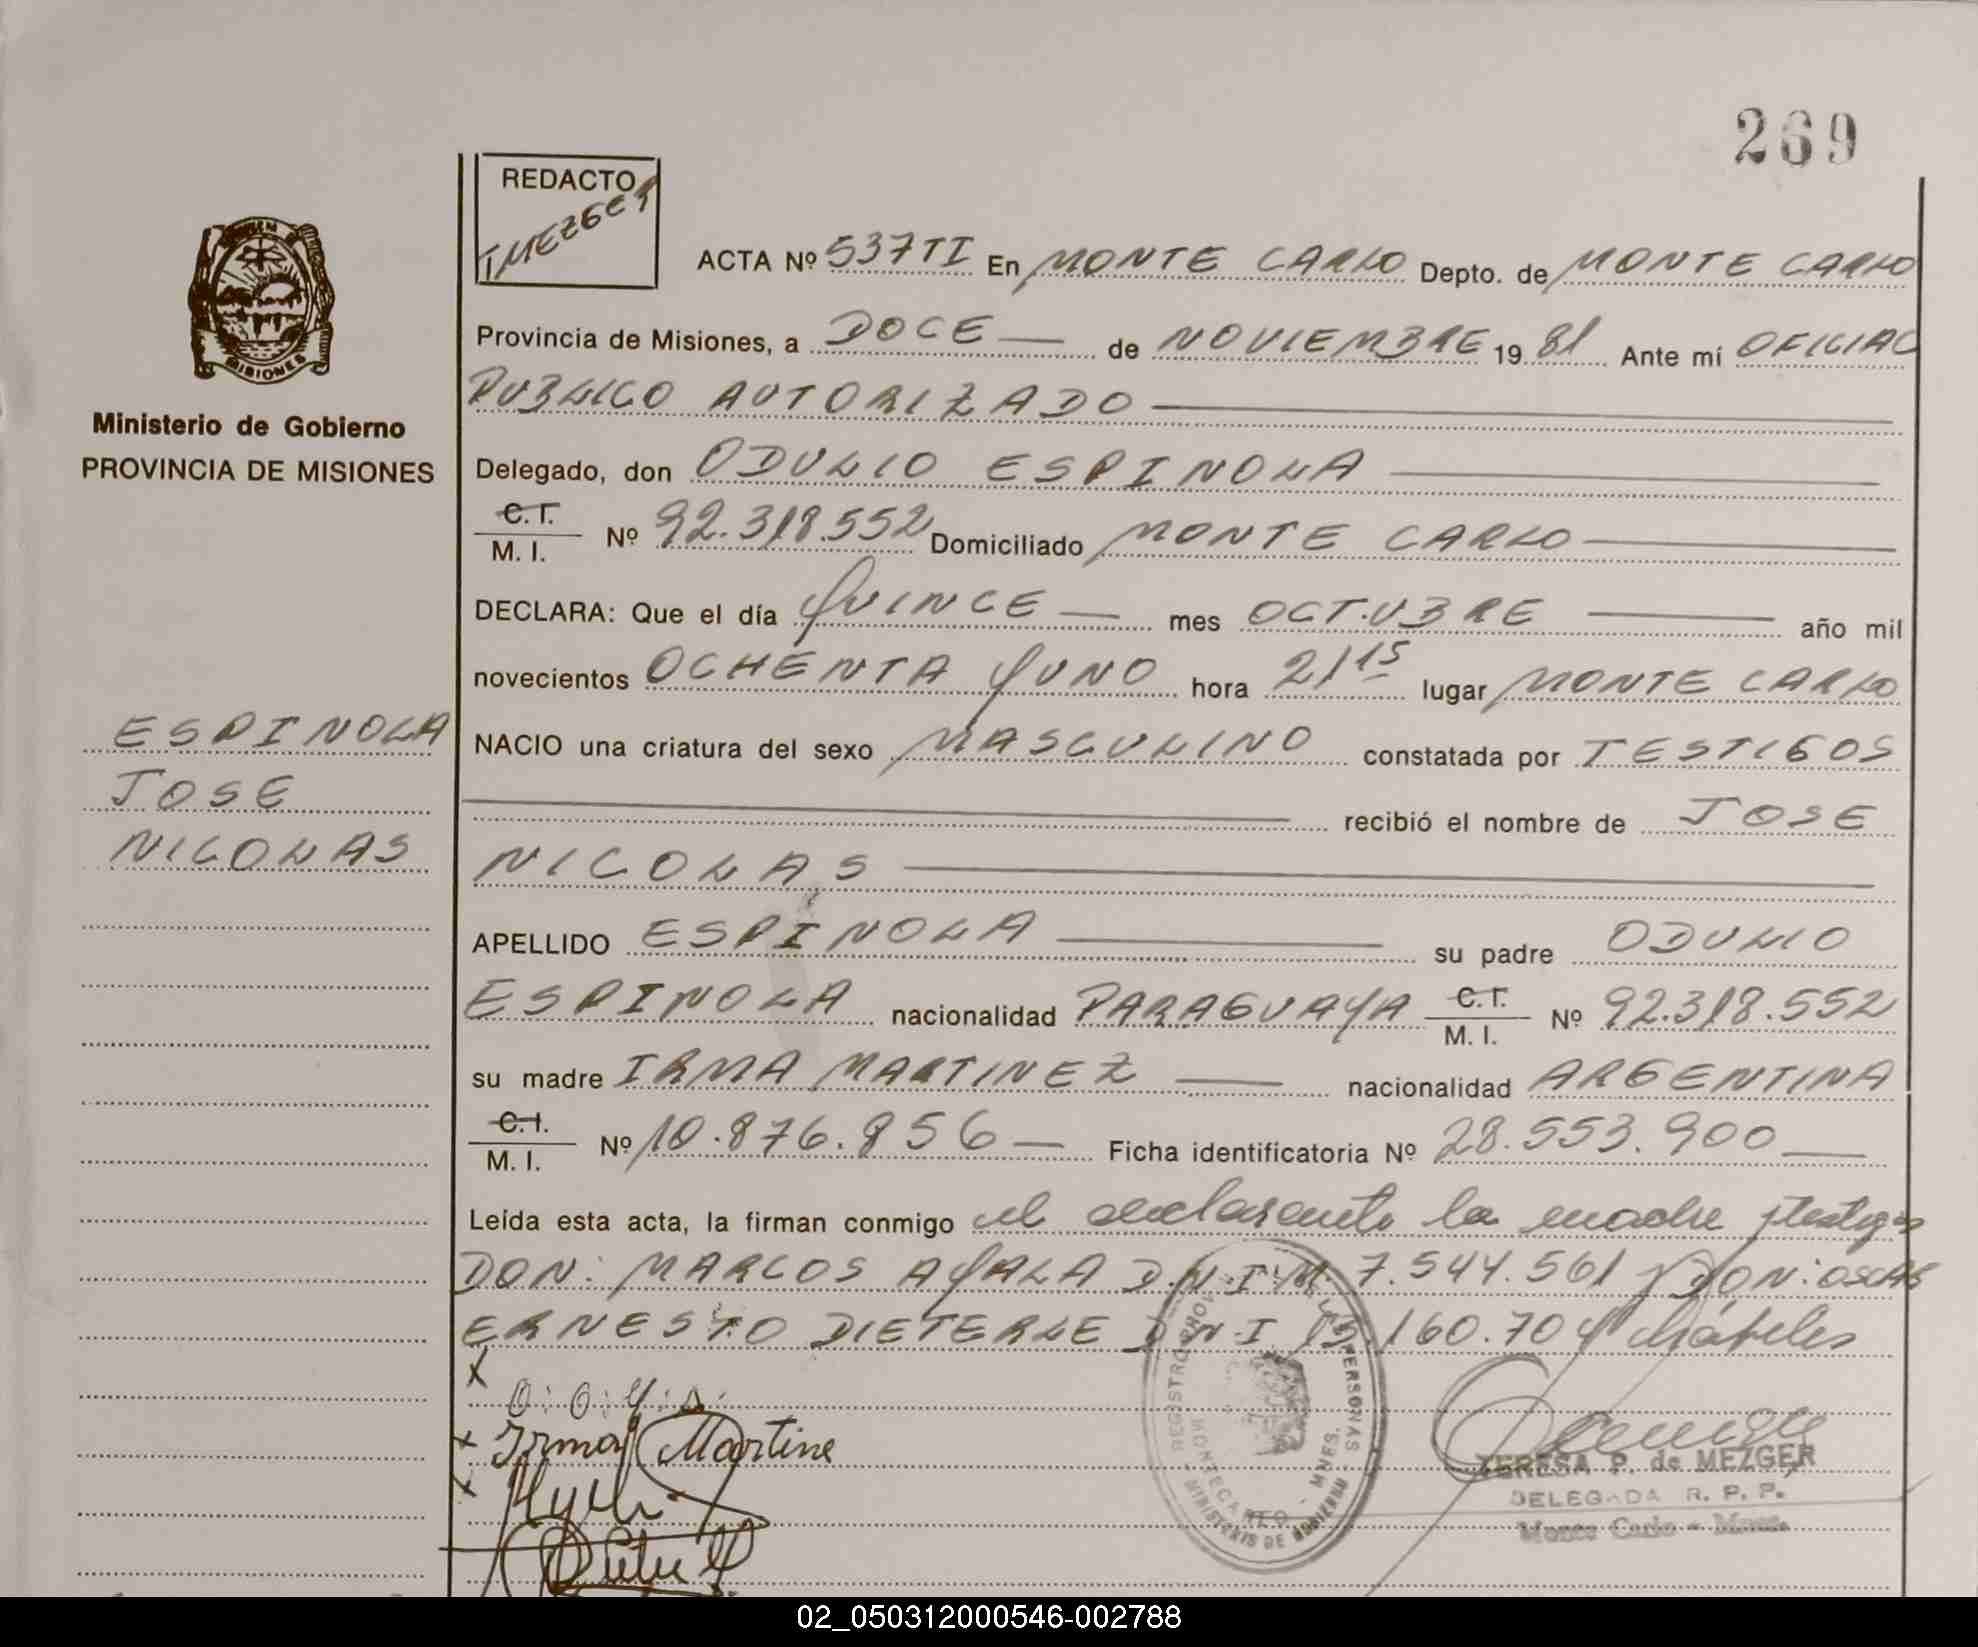 269
REDACTO
TMEZGER
ACTA Nº 537TI En MONTE CARLO Depto. de MONTE CARLO
Provincia de Misiones, a DOCE — de NOVIEMBRE 19 81 Ante mí OFICIAL
PUBLICO AUTORIZADO —
Ministerio de Gobierno
PROVINCIA DE MISIONES
Delegado, don ODULIO ESPINOLA —
C.I. M. I. Nº 92.318.552 Domiciliado MONTE CARLO —
DECLARA: Que el día QUINCE — mes OCTUBRE — año mil
novecientos OCHENTA Y UNO hora 21 15 lugar MONTE CARLO
ESPINOLA
JOSE
NICOLAS
NACIO una criatura del sexo MASCULINO constatada por TESTIGOS
— recibió el nombre de JOSE
NICOLAS —
APELLIDO ESPINOLA — su padre ODULIO
ESPINOLA nacionalidad PARAGUAYA C.I. M. I. Nº 92.318.552
su madre IRMA MARTINEZ — nacionalidad ARGENTINA
C.I. M. I. Nº 10.876.856 — Ficha identificatoria Nº 28.553.900 —
Leída esta acta, la firman conmigo el declarante la madre y testigos
DON: MARCOS AYALA D.N.I.M. 7.544.561 y DON: OSCAR
ERNESTO DIETERLE D.N.I 160.704
X
O: O: Y: A:
x Irma Martine
x
REGISTRO PROV. DE LAS PERSONAS
MONTECARLO - MNES.
MINISTERIO DE GOBIERNO
TERESA P. de MEZGER
DELEGADA R. P. P.
Monte Carlo - Mnes.
02_050312000546-002788